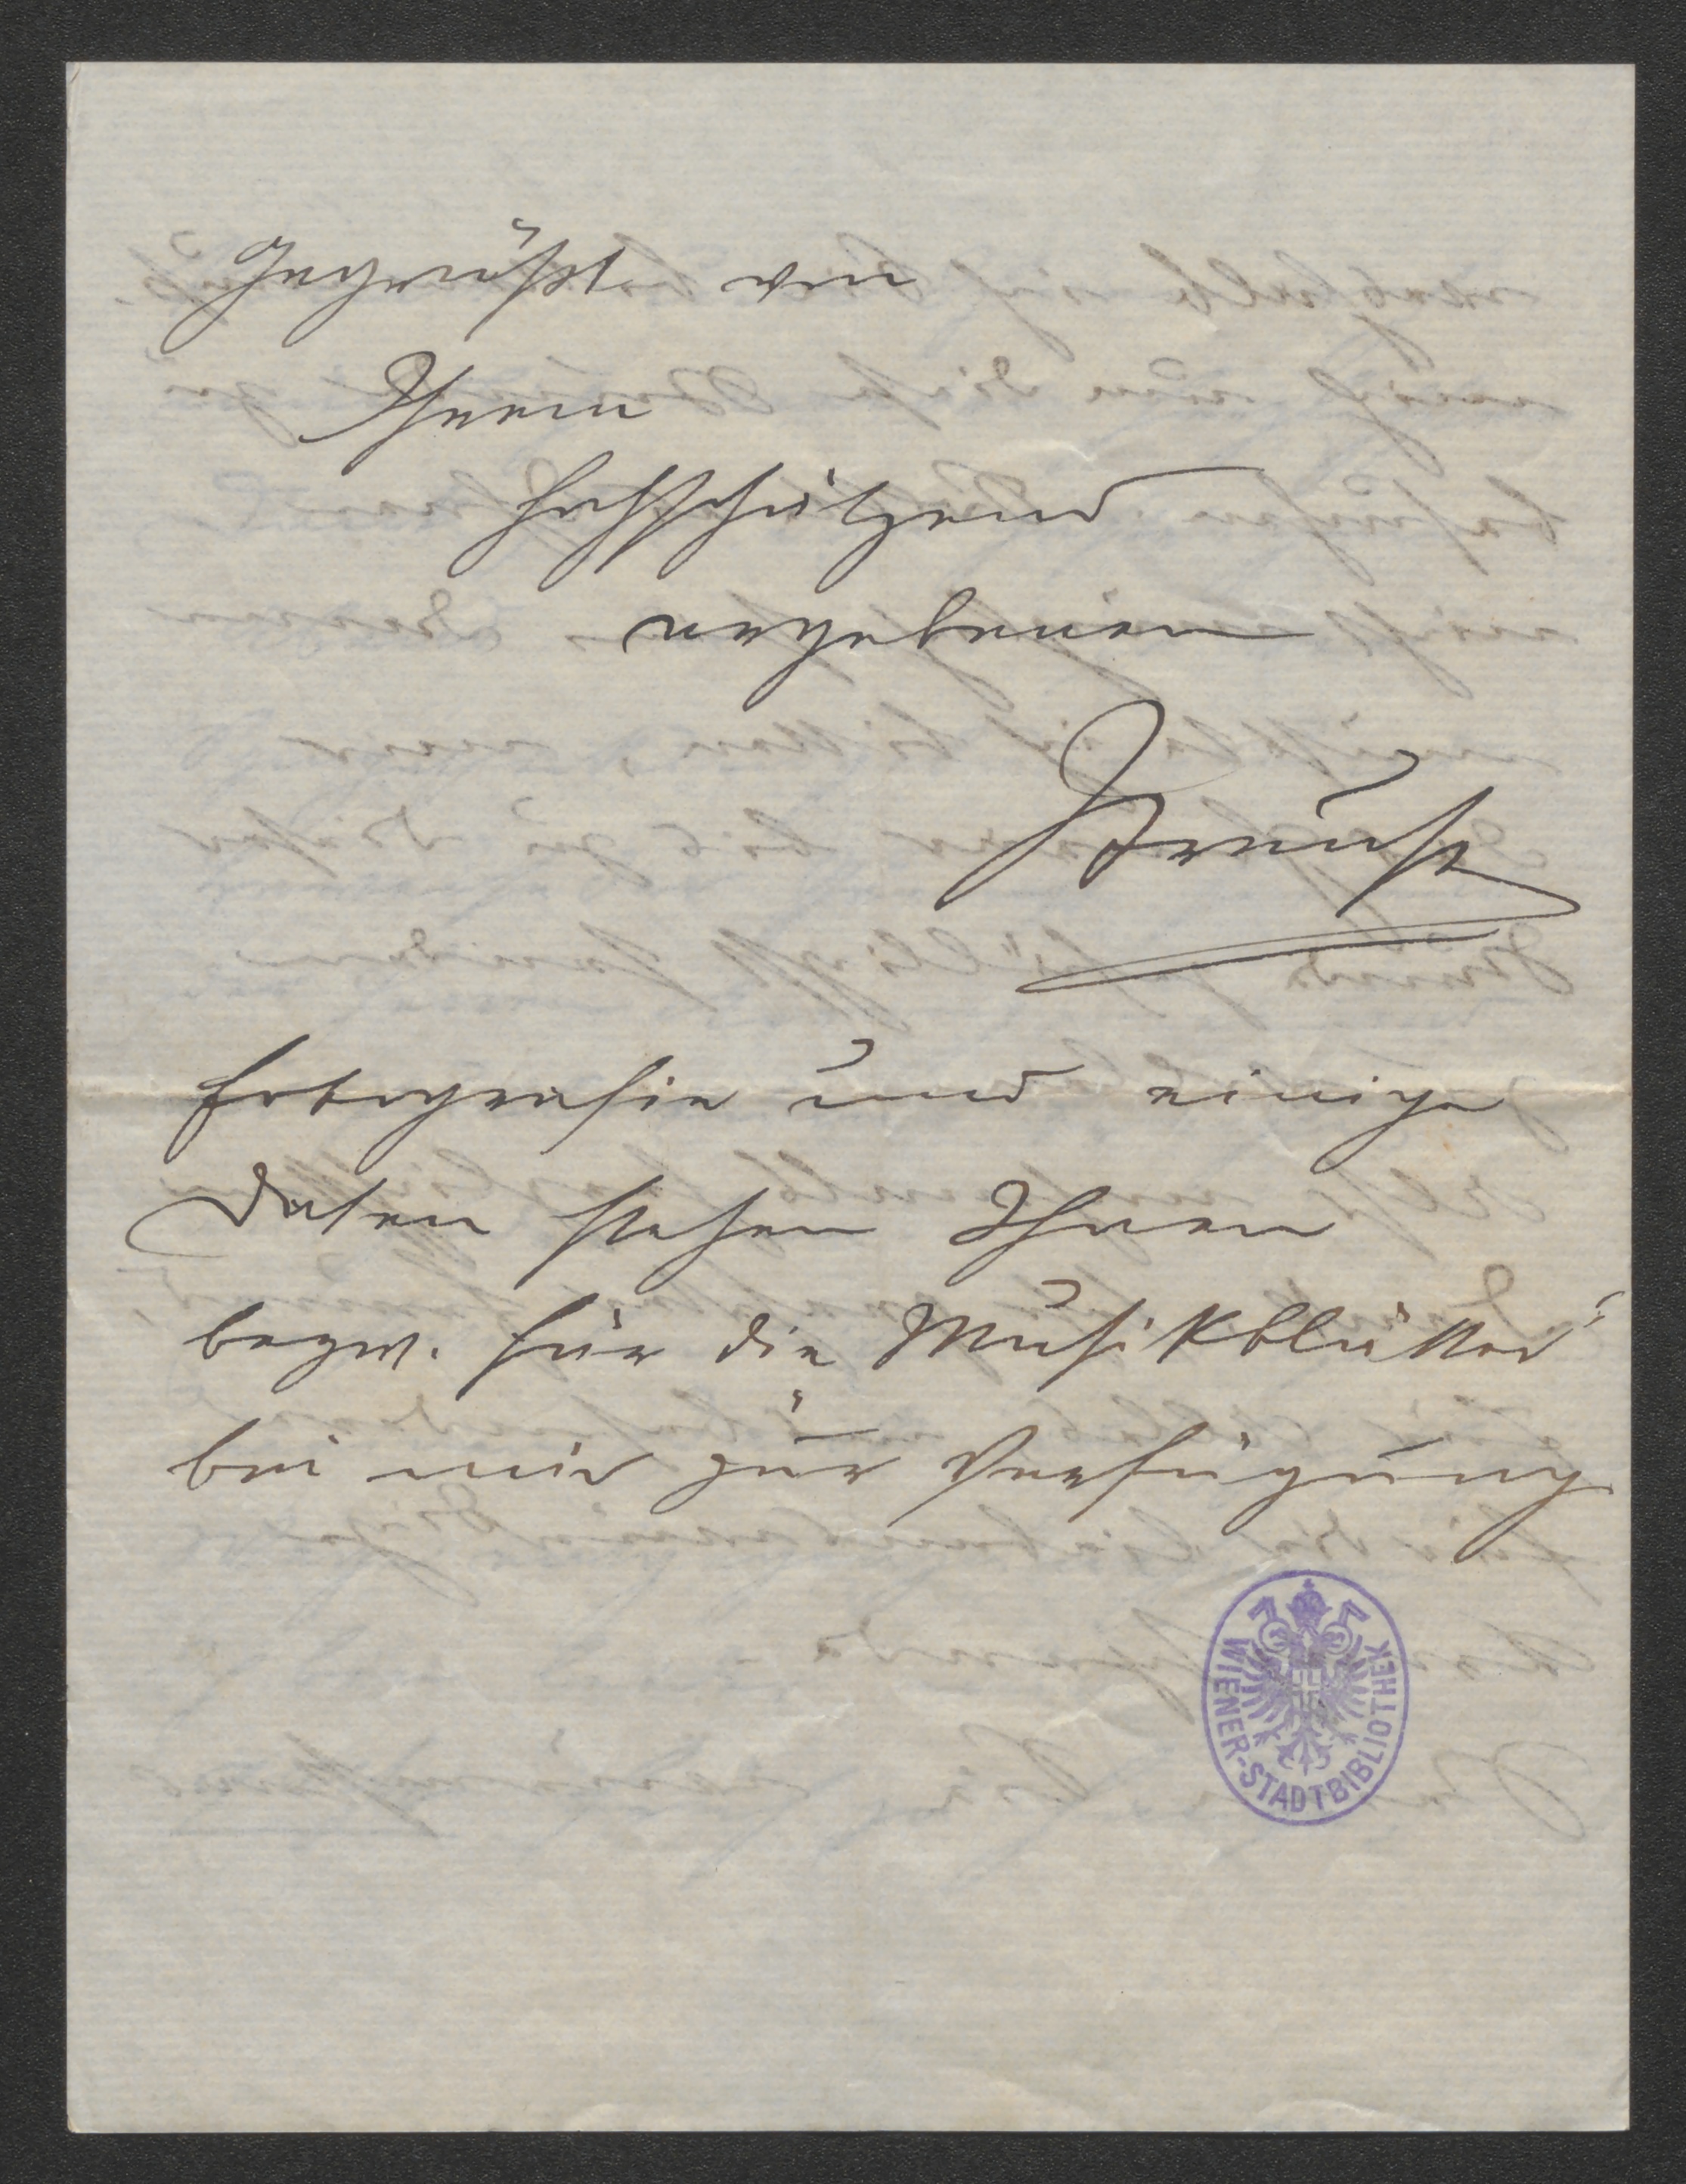 gegrüßt von
Ihrem
hochschätzend
ergebenen
Fotografie und einige
Daten stehen Ihnen
bezw. für die Musikblätter"
bei mir zur Verfügung
WIENER-STADTBIBLIOTHEK